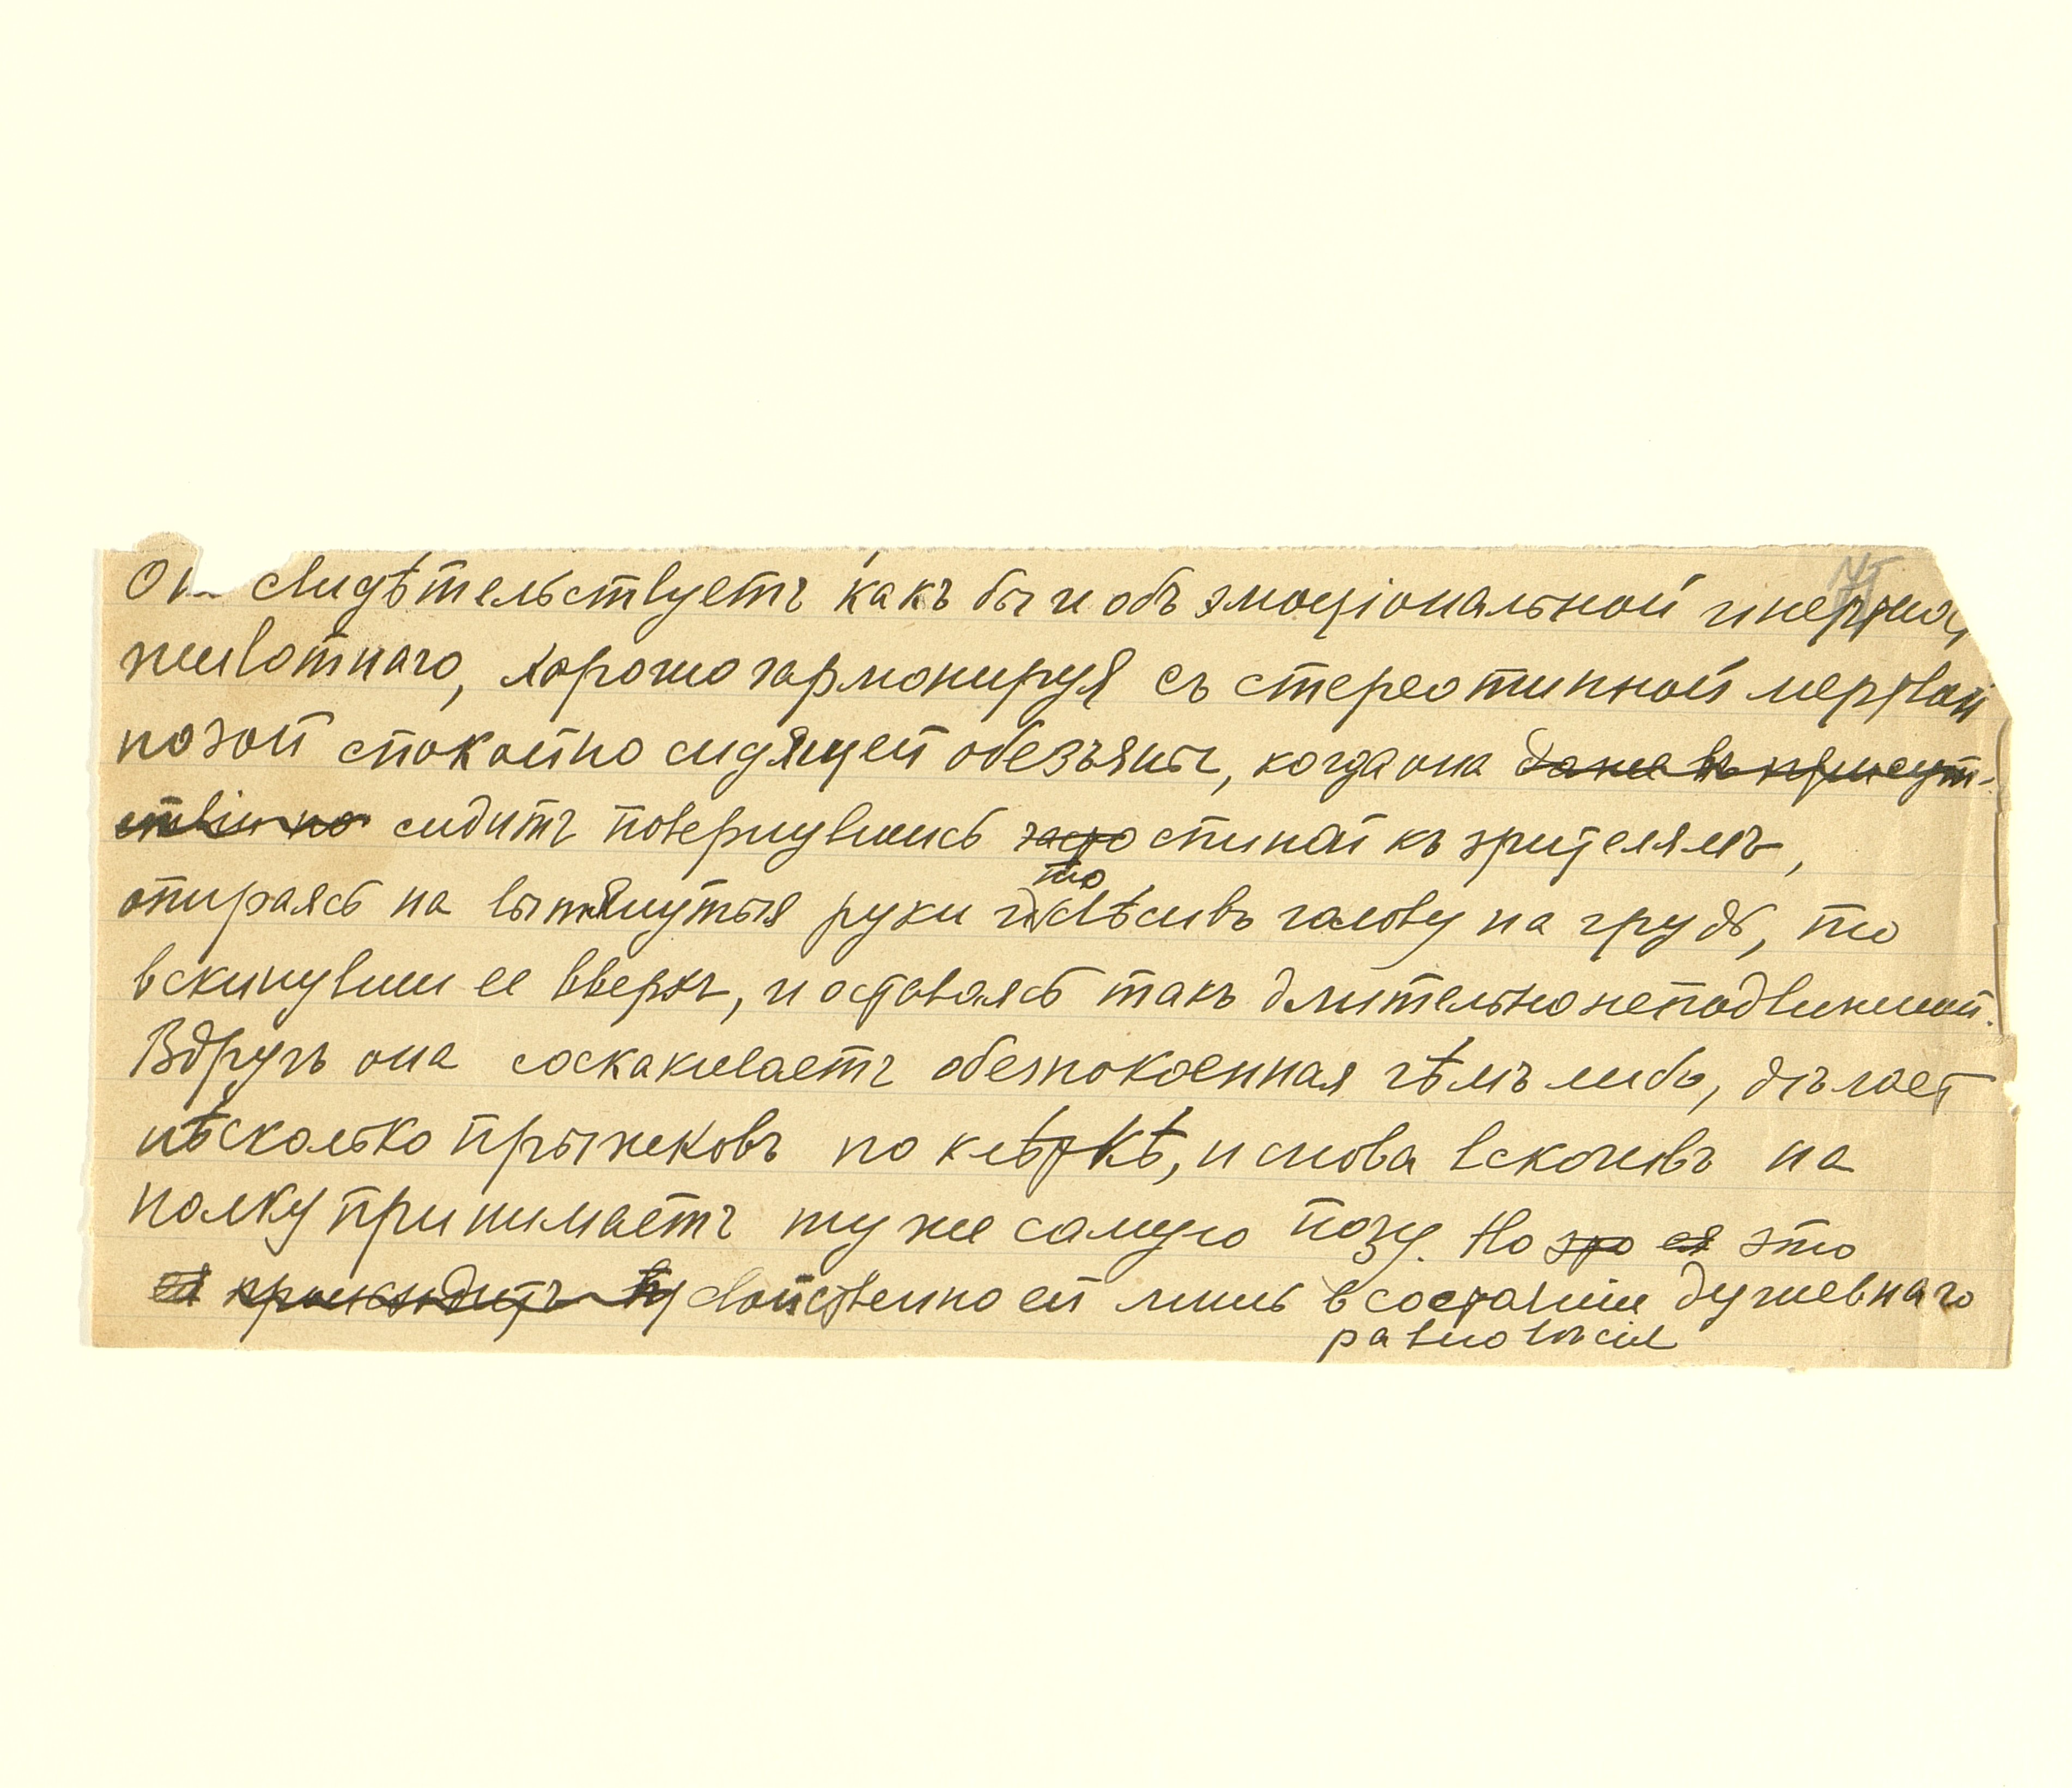 Он свидѣтельствуетъ какъ бы и объ эмоціональной инертно
животнаго, хорошо гармонируя съ стереотипной мертвой
позой спокойно сидящей обезъяны, когда она даже въ присут-
ствіи но сидитъ повернувшись часто спиной къ зрителямъ,
то
опираясь на вытянутыя руки и свѣсивъ голову на грудь, то
вскинувши ее вверхъ, и оставаясь такъ длительно неподвижной.
Вдругъ она соскакиваетъ обезпокоенная чѣмъ либо, дѣлает
нѣсколько прыжковъ по клѣткѣ, и снова вскочивъ на
полку принимаетъ ту же самую позу. Но это ея это
ея происходитъ свойственно ей лишь в состоянии душевнаго
равновѣсія